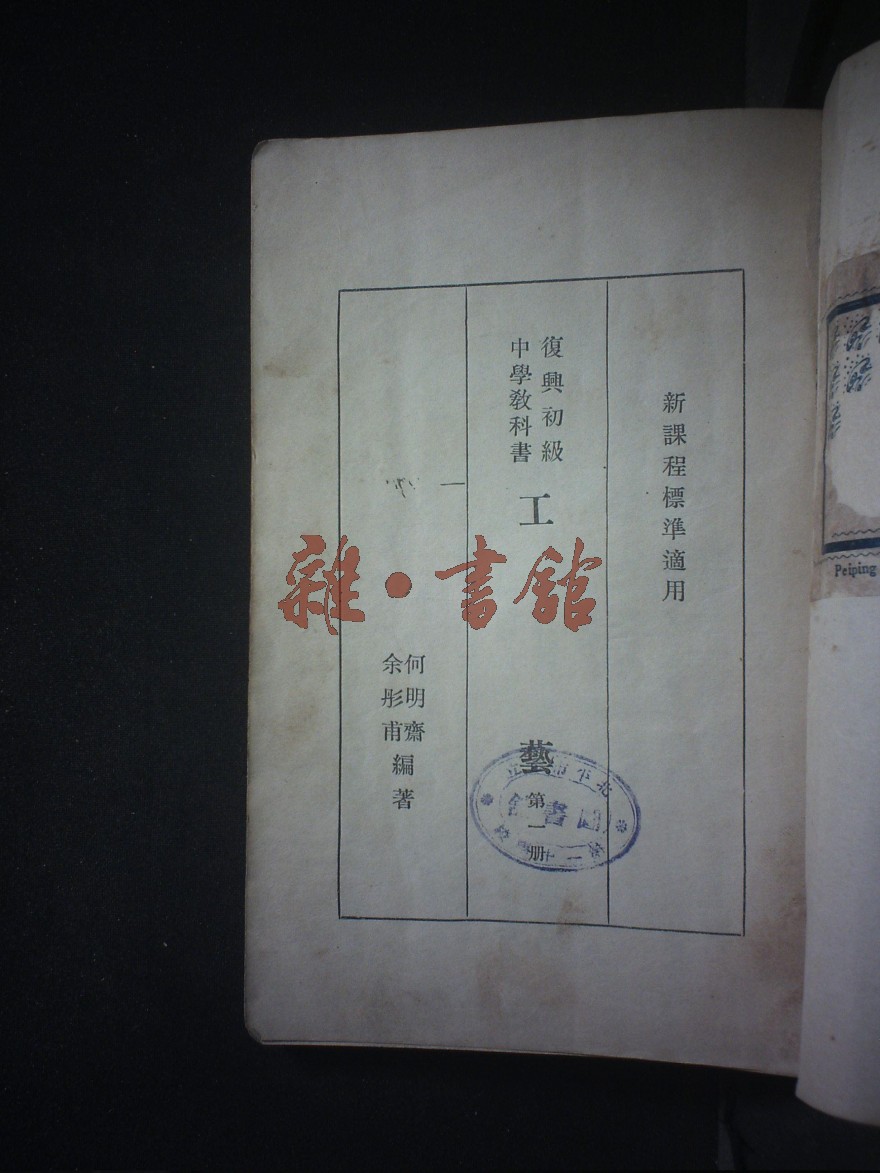 新課程標準適用
復興初級
中學教科書
工藝
第一册
何明齋
余彤甫
編著
雜·書館
北平市立
圖書館
Peiping